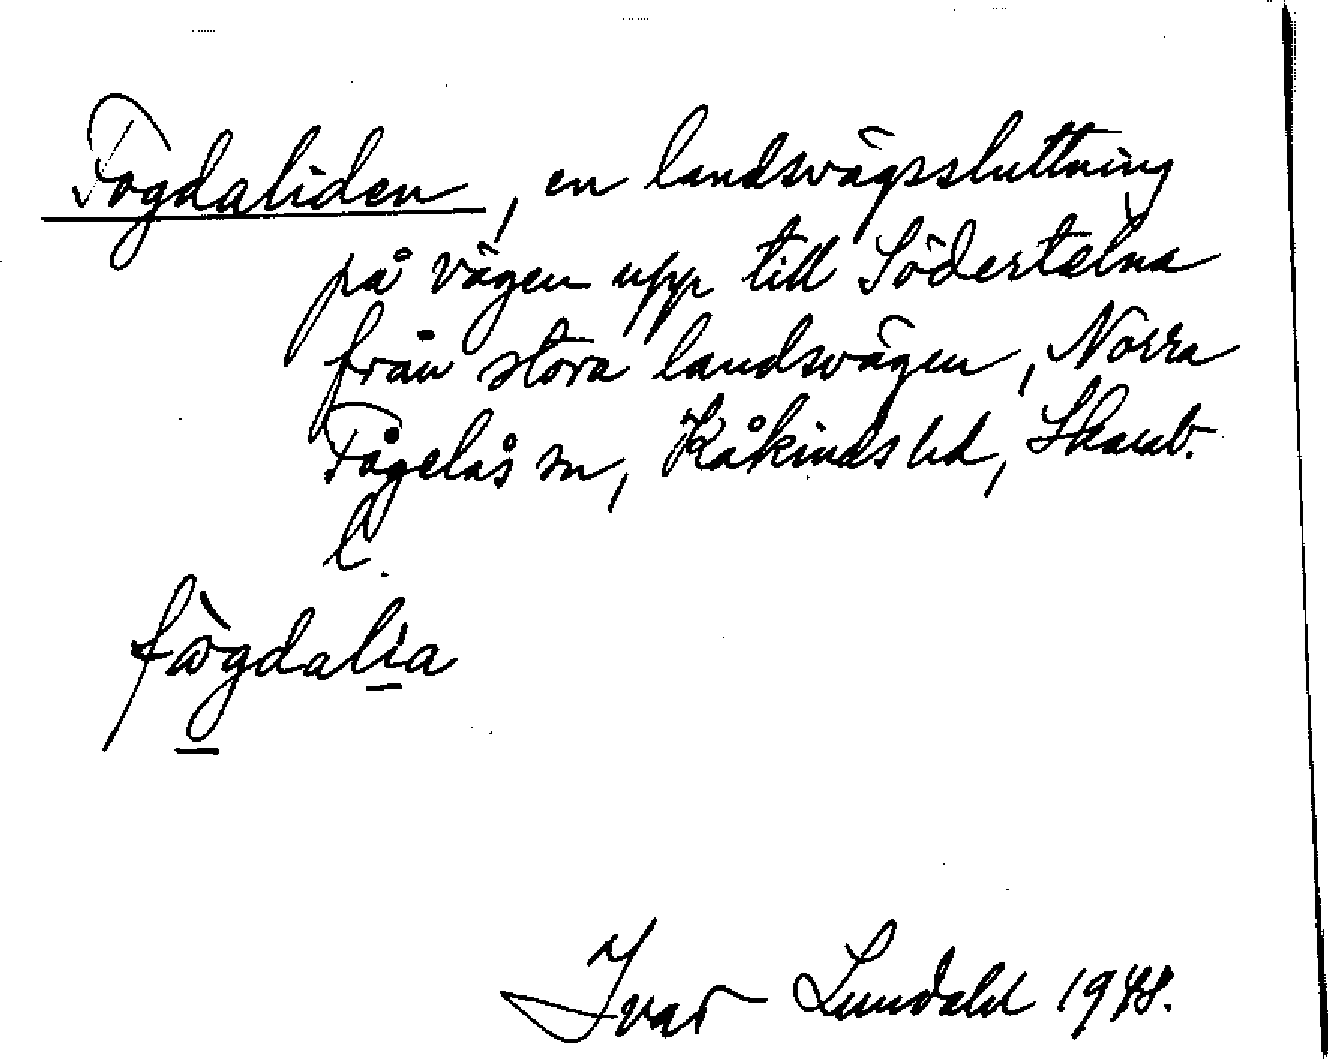 Fogdaliden, en landsvägssluttning
på vägen upp till Södertälna
från stora landsvägen, Norra
Fågelås sn, Kåkinds hd, Skarab.
l.
fògdalia
Ivar Lundahl 1948.